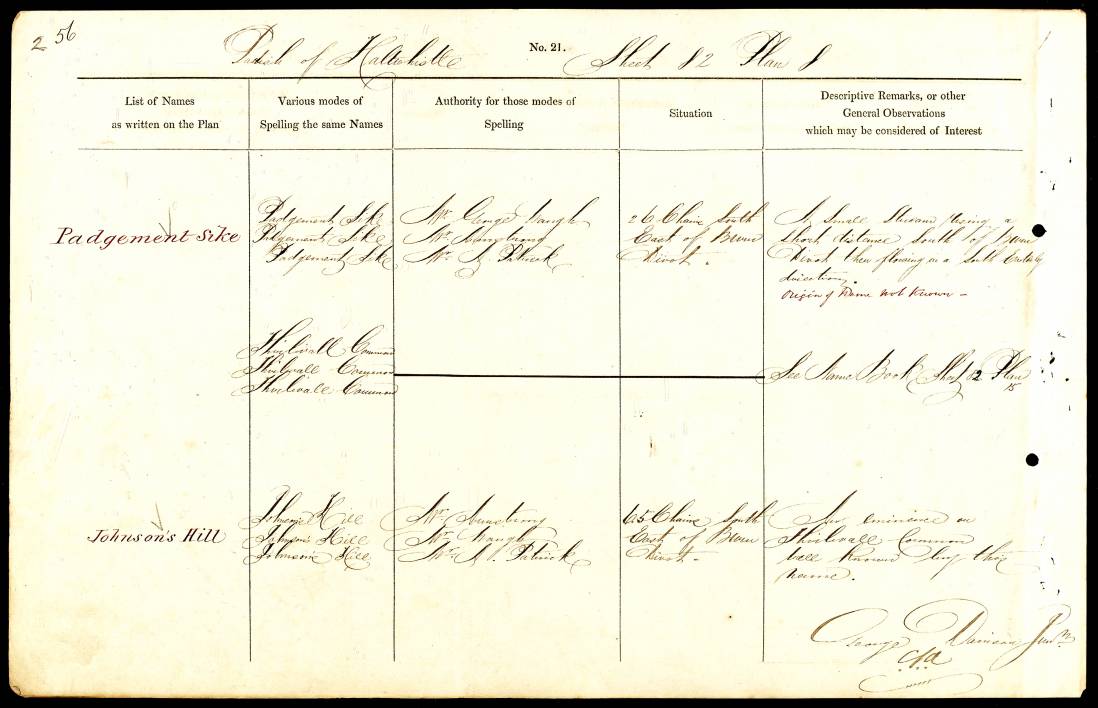 2 56
Parish of Haltwhistle No. 21. Sheet 82 Plan 8
List of Names
as written on the Plan
Various modes of
Spelling the same Names
Authority for those modes of
Spelling
Situation
Descriptive Remarks, or other
General Observations
which may be considered of Interest
Padgement Sike
Padgement Sike
Padgement Sike
Padgement Sike
Mr. George Waugh
Mr. Armstrong
Mr. J. Patrick
26 Chains South
East of Brown
Divot.
A Small Stream rising a
short distance South of Brown
Divot then flowing in a South Easterly
direction.
origin of Name not known -
Thirlwall Common
Thirlwall Common
Thirlwall Common
See Name Book Sheet 82 Plan
15
Johnson's Hill
Johnsons Hill
Johnsons Hill
Johnsons Hill
Mr. Armstrong
Mr. Waugh
Mr. J. Patrick
65 Chains South
East of Brown
Divot.
An eminence on
Thirlwall Common
well known by this
name.
George
c/a